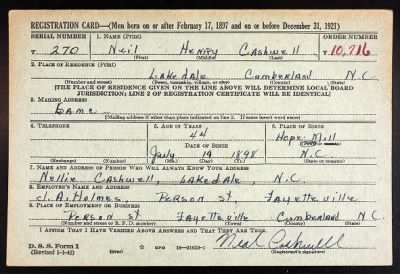 REGISTRATION CARD—(Men born on or after February 17, 1897 and on or before December 31, 1921)
SERIAL NUMBER 1. NAME (Print) ORDER NUMBER
T 270 Neil Henry Cashwell T 10,716
(First) (Middle) (Last)
2. PLACE OF RESIDENCE (Print)
Lakedale Cumberland N.C.
(Number and street) (Town, township, village, or city) (County) (State)
[THE PLACE OF RESIDENCE GIVEN ON THE LINE ABOVE WILL DETERMINE LOCAL BOARD
JURISDICTION; LINE 2 OF REGISTRATION CERTIFICATE WILL BE IDENTICAL]
3. MAILING ADDRESS
Same
[Mailing address if other than place indicated on line 2. If same insert word same]
4. TELEPHONE 5. AGE IN YEARS 6. PLACE OF BIRTH
44 Hope Mill
DATE OF BIRTH (Town or county)
July 19 1898 N.C.
(Exchange) (Number) (Mo.) (Day) (Yr.) (State or country)
7. NAME AND ADDRESS OF PERSON WHO WILL ALWAYS KNOW YOUR ADDRESS
Nellie Cashwell, Lakedale, N.C.
8. EMPLOYER'S NAME AND ADDRESS
J.A. Holmes, Person St, Fayetteville
9. PLACE OF EMPLOYMENT OR BUSINESS
Person St Fayetteville Cumberland N.C.
(Number and street or R. F. D. number) (Town) (County) (State)
I AFFIRM THAT I HAVE VERIFIED ABOVE ANSWERS AND THAT THEY ARE TRUE.
D. S. S. Form 1 Neal Cashwell
(Revised 1-1-42) GPO 16—21630-1 (Registrant's signature)